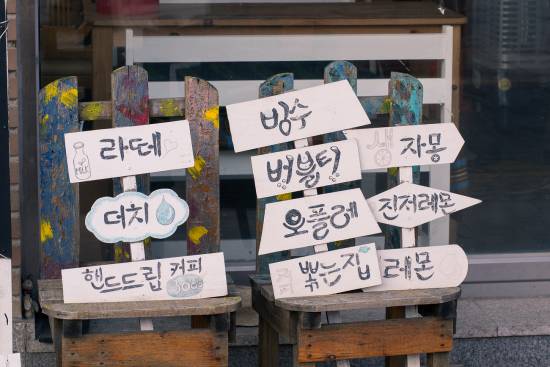 라떼
MILK
더치
핸드드립 커피
빙수
버블티
오플레
볶는집
생 자몽
진저레몬
레몬